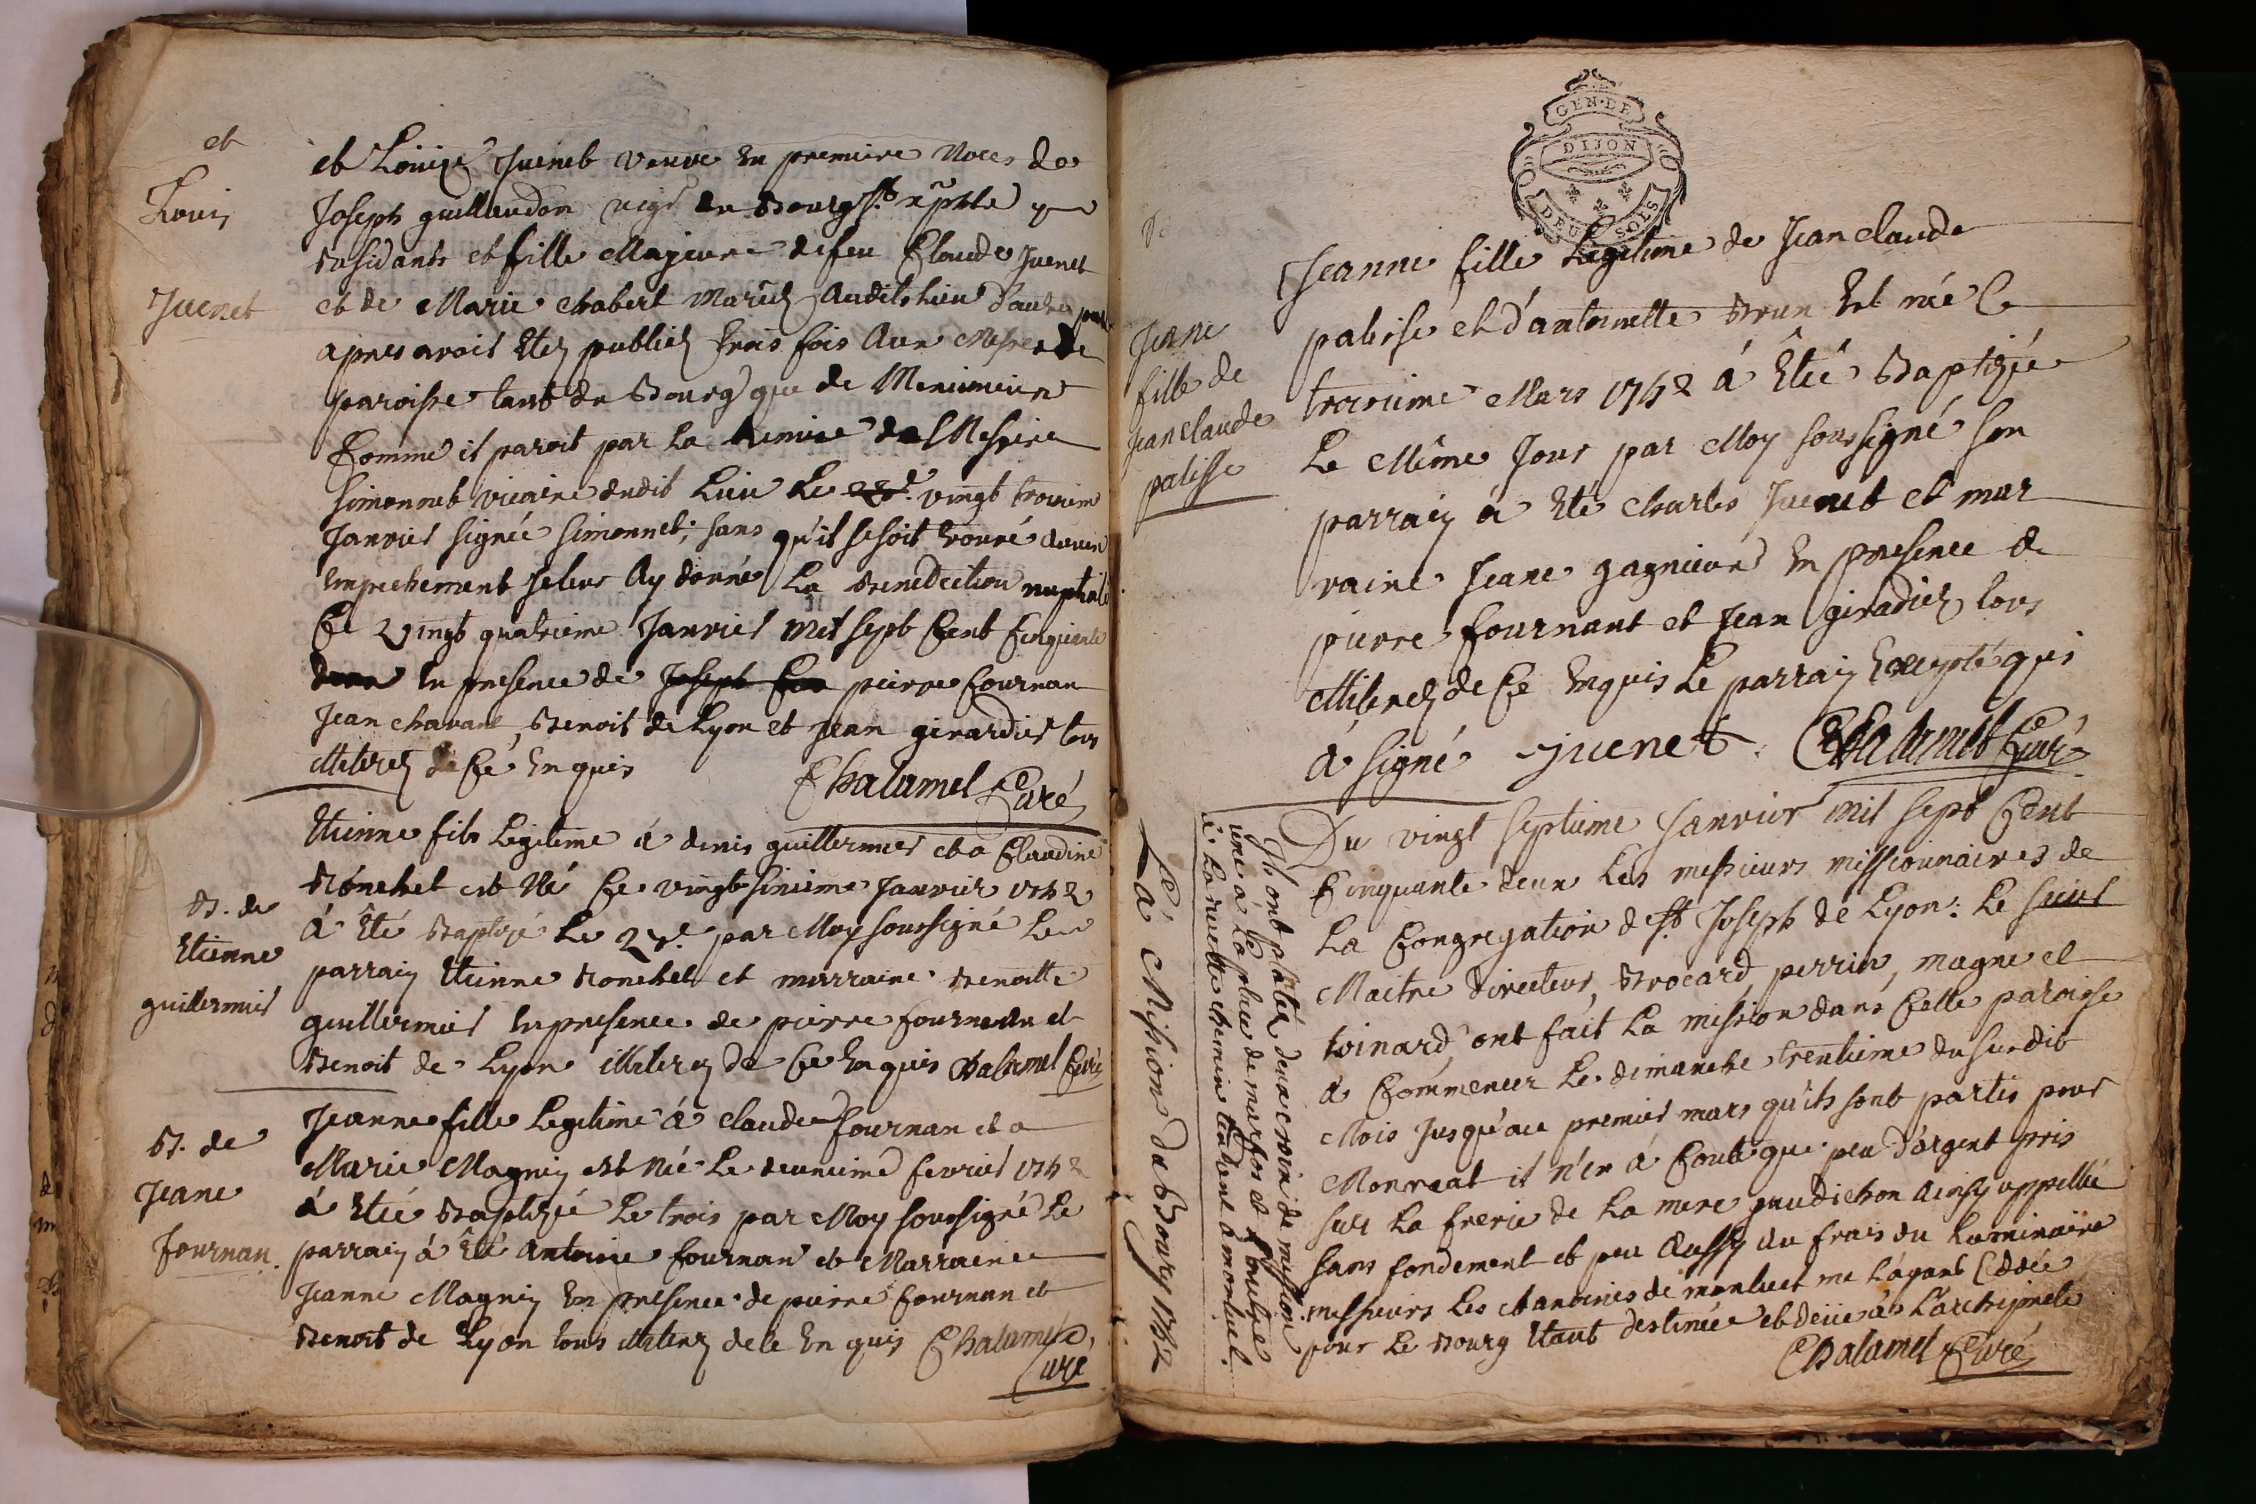 et
Louis
Juenet
et Louise Juenet veuve en premiere noces de
Joseph guillaudon du Bourg St
Residants et fille Majeure de feu Claude Juenet
et de Marie chabert Mariez Audit Lieu D'autre part
apres avoir Etez publiez trois fois Aux Messes de
paroisse tant du Bourg que de
Comme il paroit par La Remise de Messire
Simonnet vicaire dudit Lieu Le vingt troisieme
Janvier signée Simonnet; sans qu'il se soit trouvé Aucun
Empechement Je leur Ay donné La Benediction nuptiale
Ce vingt quatrieme Janvier Mil sept Cent Cinquante
deux En presence de Joseph Fou pierre Fournan
Jean chavane, Benoit de Lyon et Jean girardier tous
illiterez de Ce Enquis Chalamel Curé
B. de
Etienne
guillermier
Etienne fils Legitime à denis guillermier et a Claudine
Ronchet est Né Ce vingt sixieme Janvier 1752
à Été Baptizé Le 27e par Moy soussigné Le
parrain Etienne Ronchet et marraine Benoitte
guillermier En presence de pierre fournan et
Benoit de Lyon illiterez de Ce Enquis Chalamel Curé
B. de
Jeane
fournan
Jeanne fille Legitime à claude fournan et a
Marie Magnin est Née Le deuxieme fevrier 1752
à Etée Baptizée Le trois par Moy soussigné Le
parrain à Été Antoine fournan et Marraine
Jeanne Magnin En presence de pierre Fournan et
Benoit de Lyon tous illiterez de Ce Enquis Chalamel
Curé
GEN·DE
DIJON
DEUX SOLS
Jeane
fille de
Jean claude
palisse
Jeanne fille Legitime de Jean claude
palisse et d'antoinette Brun Est née Ce
troisieme Mars 1752 à Étée Baptizée
Le Même Jour par Moy soussigné son
parrain à Eté charles Juenet et mar
raine Jeane gagnieure En presence de
pierre fournant et Jean giradier tous
illiterez de Ce Enquis Le parrain Excepté qui
à signé Juenet Chalamel Curé
La Mission du Bourg 1752
Ils ont planté deux croix de mission
une à La place de marfos et l'autre
à La ruette chemin tendant a monluel.
Du vingt septieme Janvier mil sept Cent
Cinquante deux Les messieurs missionnaires de
La Congregation de St Joseph de Lyon: Le sieur
Maitre Directeur, Brocard, perrin, magne et
toinard ont fait La mission dans Cette paroisse
à Commencer Le dimanche trentieme du susdit
Mois Jusqu'au premier mars qu'ils sont partis pour
Monreal il n'en à Couté que peu d'argent pris
sur La frerie de La mere gaudichon Ainsy appellée
sans fondement et peu Aussy du frais du Luminaire
messieurs Les chanoines de monluel me L'ayant Cédée
pour Le Bourg Etant destinée et deüe à L'archipretré
Chalamel Curé